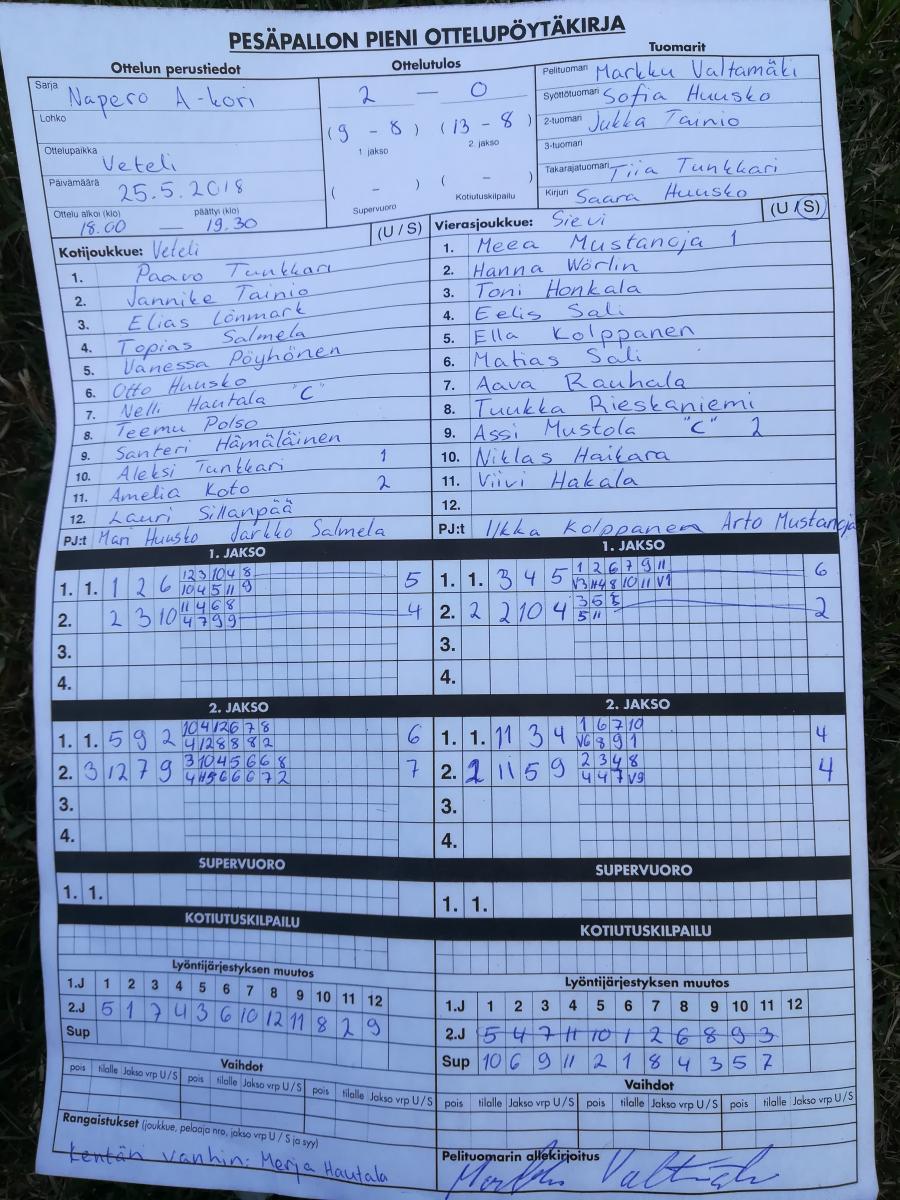 PESÄPALLON PIENI OTTELUPÖYTÄKIRJA
Ottelun perustiedot
Sarja Napero A-kori
Lohko
Ottelupaikka Veteli
Päivämäärä 25.5.2018
Ottelu alkoi (klo) päättyi (klo)
18.00 — 19.30
Ottelutulos
2 — 0
(9 - 8) (13 - 8)
1. jakso 2. jakso
( - ) ( - )
Supervuoro Kotiutuskilpailu
Tuomarit
Pelituomari Markku Valtamäki
Syöttötuomari Sofia Huusko
2-tuomari Jukka Tainio
3-tuomari
Takarajatuomari Tiia Tunkkari
Kirjuri Saara Huusko
Kotijoukkue: Veteli (U / S)
1. Paavo Tunkkari
2. Jannike Tainio
3. Elias Lönmark
4. Topias Salmela
5. Vanessa Pöyhönen
6. Otto Huusko
7. Nelli Hautala "C"
8. Teemu Polso
9. Santeri Hämäläinen
10. Aleksi Tunkkari 1
11. Amelia Koto 2
12. Lauri Sillanpää
PJ:t Mari Huusko Jarkko Salmela
Vierasjoukkue: Sievi (U / S)
1. Meea Mustanoja 1
2. Hanna Wörlin
3. Toni Honkala
4. Eelis Sali
5. Ella Kolppanen
6. Matias Sali
7. Aava Rauhala
8. Tuukka Rieskaniemi
9. Assi Mustola "C" 2
10. Niklas Haikara
11. Viivi Hakala
12.
PJ:t Ilkka Kolppanen Arto Mustanoja
1. JAKSO
1. 1. 1 2 6 12 3 10 4 8 5
10 4 5 11 9
2. 2 3 10 11 4 6 8 4
4 7 9 9
3.
4.
1. JAKSO
1. 1. 3 4 5 1 2 6 7 9 11 6
V3 11 4 8 10 11 V1
2. 2 2 10 4 3 5 5 2
5 11
3.
4.
2. JAKSO
1. 1. 5 9 2 10 4 12 6 7 8 6
4 12 8 8 8 2
2. 3 12 7 9 3 10 4 5 6 6 8 7
4 11 5 6 6 6 7 2
3.
4.
2. JAKSO
1. 1. 11 3 4 1 6 7 10 4
V6 8 9 1
2. 2 11 5 9 2 3 4 8 4
4 4 7 V9
3.
4.
SUPERVUORO
1. 1.
SUPERVUORO
1. 1.
KOTIUTUSKILPAILU
KOTIUTUSKILPAILU
Lyöntijärjestyksen muutos
1.J 1 2 3 4 5 6 7 8 9 10 11 12
2.J 5 1 7 4 3 6 10 12 11 8 2 9
Sup
Lyöntijärjestyksen muutos
1.J 1 2 3 4 5 6 7 8 9 10 11 12
2.J 5 4 7 11 10 1 2 6 8 9 3
Sup 10 6 9 11 2 1 8 4 3 5 7
Vaihdot
pois tilalle Jakso vrp U / S pois tilalle Jakso vrp U / S pois tilalle Jakso vrp U / S
Vaihdot
pois tilalle Jakso vrp U / S pois tilalle Jakso vrp U / S pois tilalle Jakso vrp U / S
Rangaistukset (joukkue, pelaaja nro, jakso vrp U / S ja syy)
Kentän vanhin: Merja Hautala
Pelituomarin allekirjoitus
Markku Valtamäki